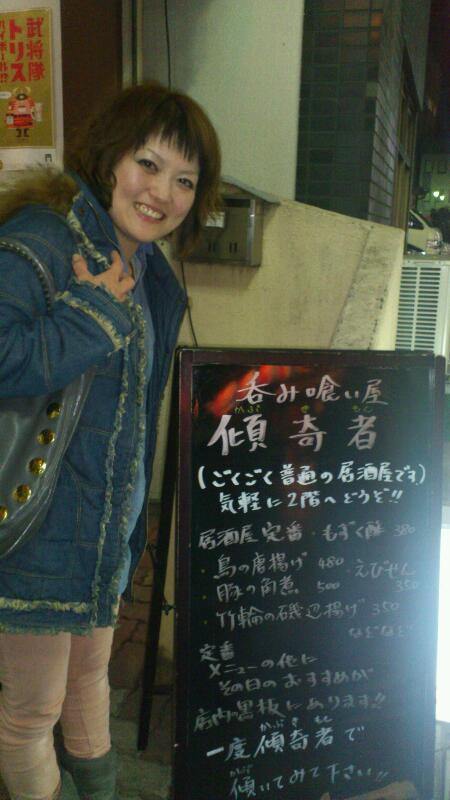 武将隊
トリス
ハイボール!!
呑み喰い屋
かぶきもん
傾奇者
(ごくごく普通の居酒屋です)
気軽に2階へどうぞ!!
居酒屋定番・もずく酢 380
・鳥の唐揚げ 480 えびせん
・豚の角煮 500 350
・竹輪の磯辺揚げ 350
などなど
定番
メニューの他に
その日のおすすめが
店内の黒板にあります!!
かぶきもん
一度傾奇者で
かぶ
傾いてみて下さい!!